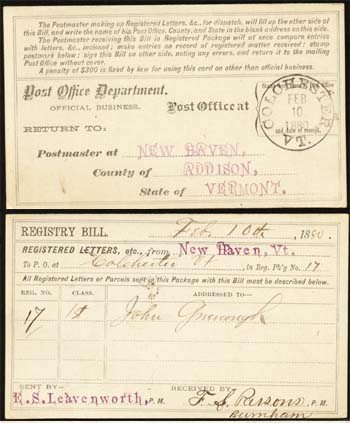 The Postmaster making up Registered Letters, &c., for dispatch, will fill up the other side of
this Bill, and write the name of his Post Office, County, and State in the blank address on this side.
The Postmaster receiving this Bill in Registered Package will at once compare entries
with letters, &c., inclosed; make entries on record of registered matter received; stamp
postmark below; sign this Bill on other side, noting any errors, and return it to the mailing
Post Office without cover.
A penalty of $300 is fixed by law for using this card on other than official business.
Post Office Department.
OFFICIAL BUSINESS.
Post Office at
COLCHESTER
FEB
10
1880
VT.
and date of receipt.
RETURN TO:
Postmaster at NEW HAVEN,
County of ADDISON,
State of VERMONT.
REGISTRY BILL.
Feb. 10th, 1880
REGISTERED LETTERS, etc., from New Haven, Vt.
To P. O. at Colchester Vt, in Reg. Pk'g No. 17
All Registered Letters or Parcels sent in this Package with this Bill must be described below.
REG. NO. CLASS. ADDRESSED TO—
17 1st John
SENT BY—
E.S. Leavenworth, P. M.
RECEIVED BY—
F. S. Parsons, P. M.